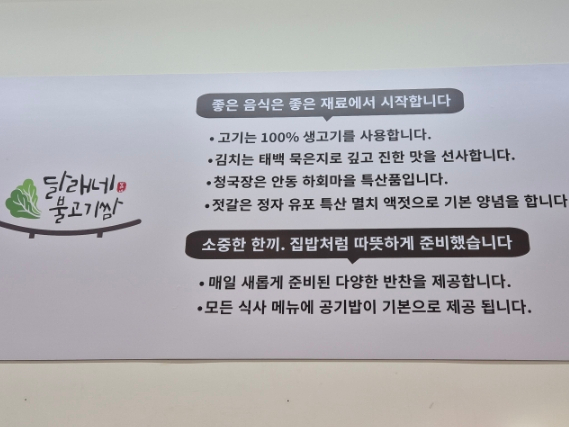 달래네
불고기쌈
좋은 음식은 좋은 재료에서 시작합니다
• 고기는 100% 생고기를 사용합니다.
• 김치는 태백 묵은지로 깊고 진한 맛을 선사합니다.
• 청국장은 안동 하회마을 특산품입니다.
• 젓갈은 정자 유포 특산 멸치 액젓으로 기본 양념을 합니다
소중한 한끼. 집밥처럼 따뜻하게 준비했습니다
• 매일 새롭게 준비된 다양한 반찬을 제공합니다.
• 모든 식사 메뉴에 공기밥이 기본으로 제공 됩니다.